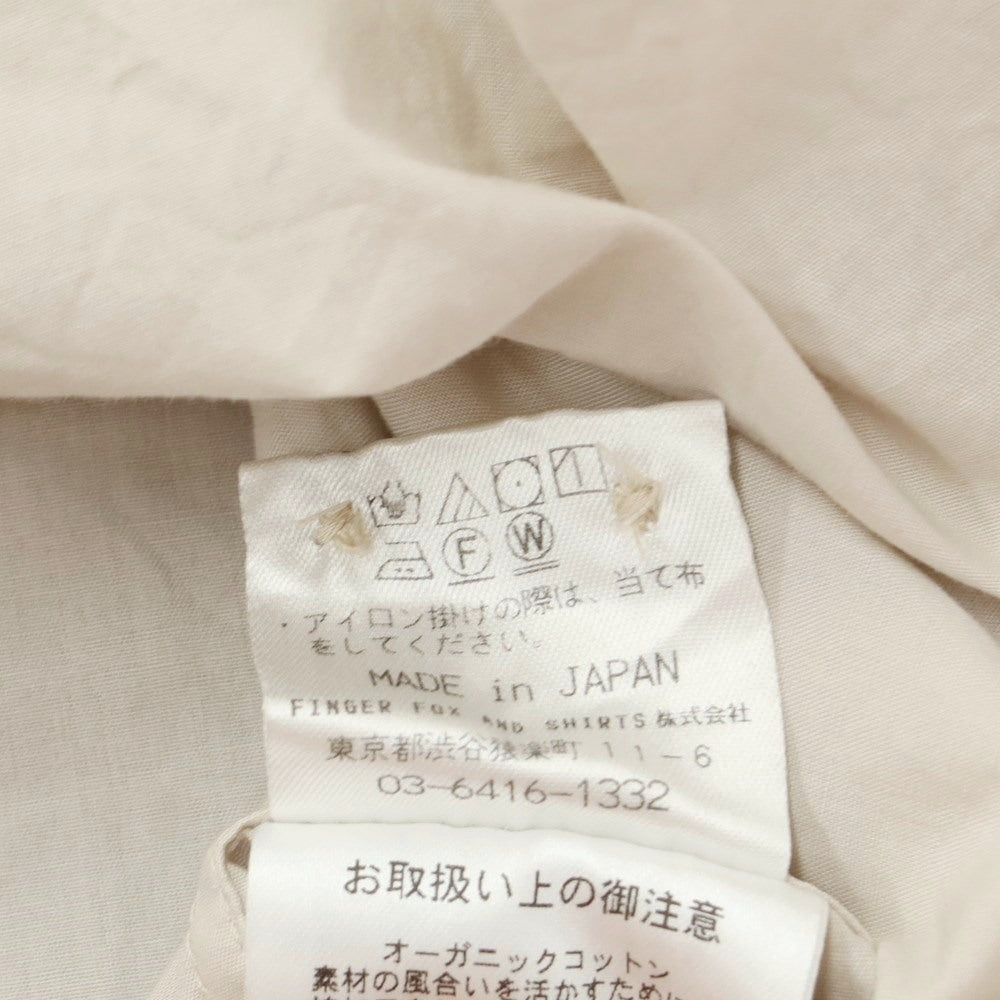 F W
・アイロン掛けの際は、当て布
をしてください。
MADE in JAPAN
FINGER FOX AND SHIRTS 株式会社
東京都渋谷猿楽町 11-6
03-6416-1332
お取扱い上の御注意
オーガニックコットン
素材の風合いを活かすために